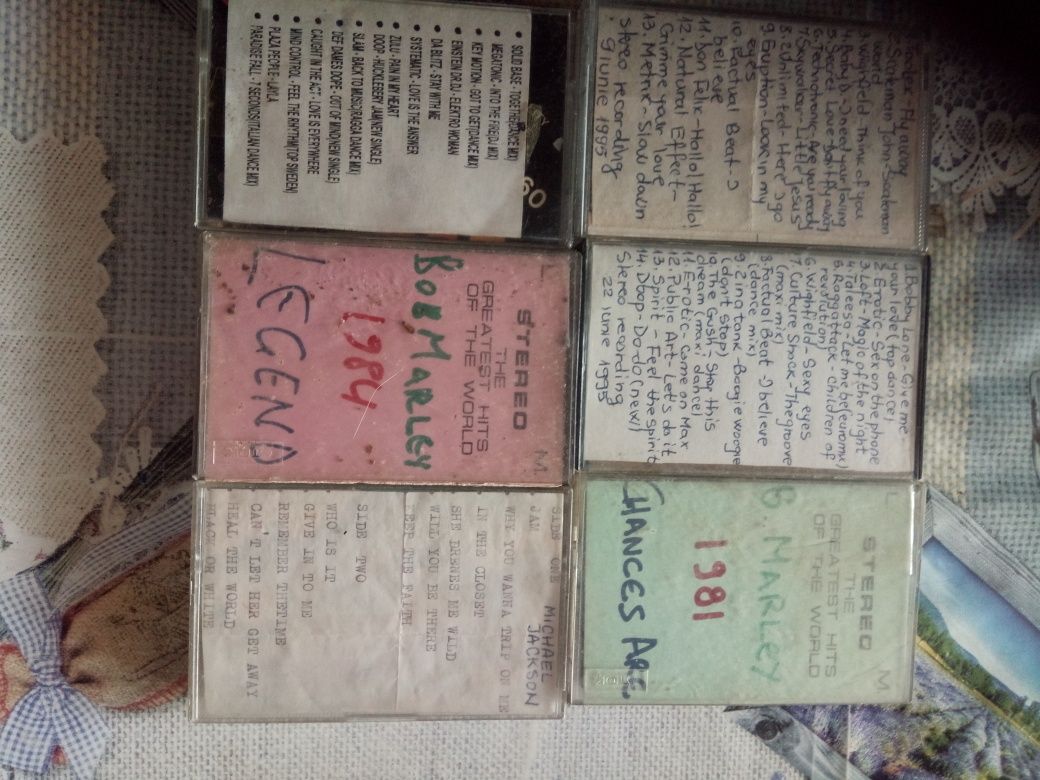 SOLID BASE - TOGETHER(DANCE MIX)
MEGATONIC - INTO THE FIRE(DJ MIX)
KEY MOTION - GOT TO GET(DANCE MIX)
EINSTEIN DR.DJ - ELEKTRO WOMAN
DA BLITZ - STAY WITH ME
SYSTEMATIC - LOVE IS THE ANSWER
ZULU - PAIN IN MY HEART
DOOP - HUCKLEBERRY JAM(NEW SINGLE)
SLAM - BACK TO MUSIC(RAGGA DANCE MIX)
DEF DAMES DOPE - OUT OF MIND(NEW SINGLE)
CAUGHT IN THE ACT - LOVE IS EVERYWHERE
MIND CONTROL - FEEL THE RHYTHM(TOP SWEDEN)
PLAZA PEOPLE - LAYLA
PARADISE FALL - 7 SECONDS(ITALIAN DANCE MIX)
60
Fly away
John-Scatman
world
Gold-Think of you
4 Baby D-I need your loving
5 Secret Love-Don't fly away
6 Technotronic-Are you ready
7 Skywalker-Little Jesus
8. 2 Unlimited-Here I go
9. Eruption-Look in my
eyes
10. Factual Beat-I
believe
11. Don Felix-Hallo! Hallo!
12. Natural Effect-
Gimme your love
13. Metrix-Slow down
stereo recording
9 iunie 1995
L M
STEREO
THE
GREATEST HITS
OF THE WORLD
BOB MARLEY
1984
LEGEND
1 Bobby Love-Give me
your love (top dance)
2 Erotic-Sex on the phone
3 Loft-Magic of the night
4 Taleesa-Let me be (euromix)
5 Raggattack-Children of
revolution)
6 Whigfield-Sexy eyes
7 Culture Shock-The groove
(maxi mix)
8. Factual Beat-I believe
(dance mix)
9 Zina tank-Boogie woogie
(don't stop)
The Gush-Stop this
dream (maxi dance)
11. Erotic-Come on Max
12. Public Art-Let's do it
13. Spirit-Feel the spirit
14. Doop-Do-do (new)
Stereo recording
22 iunie 1995
SIDE ONE
MICHAEL
JACKSON
JAM
WHY YOU WANNA TRIP ON ME
IN THE CLOSET
SHE DRENES ME WILD
WILL YOU BE THERE
KEEP THE FAITH
SIDE TWO
WHO IS IT
GIVE IN TO ME
REMEBER THETIME
CAN'T LET HER GET AWAY
HEAL THE WORLD
BLACK OR WHITE
L M
STEREO
THE
GREATEST HITS
OF THE WORLD
B. MARLEY
1981
CHANCES ARE